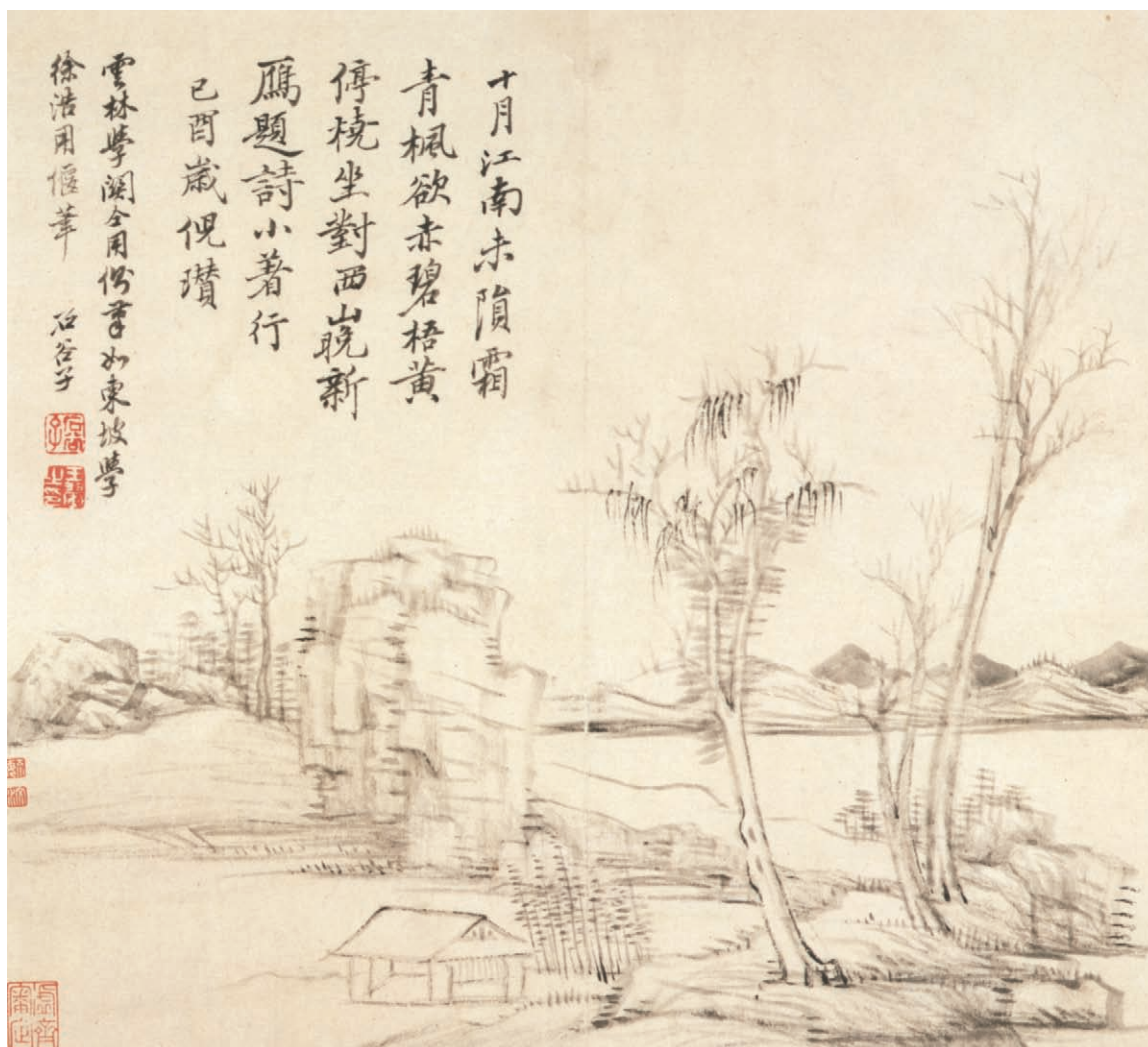 十月江南未隕霜
青楓欲赤碧梧黃
停橈坐對西山晚新
鴈題詩小著行
己酉歲倪瓚
雲林學關仝用側筆如東坡學
徐浩用偃筆 石谷子
石谷子
王翬之印
虛齋審定